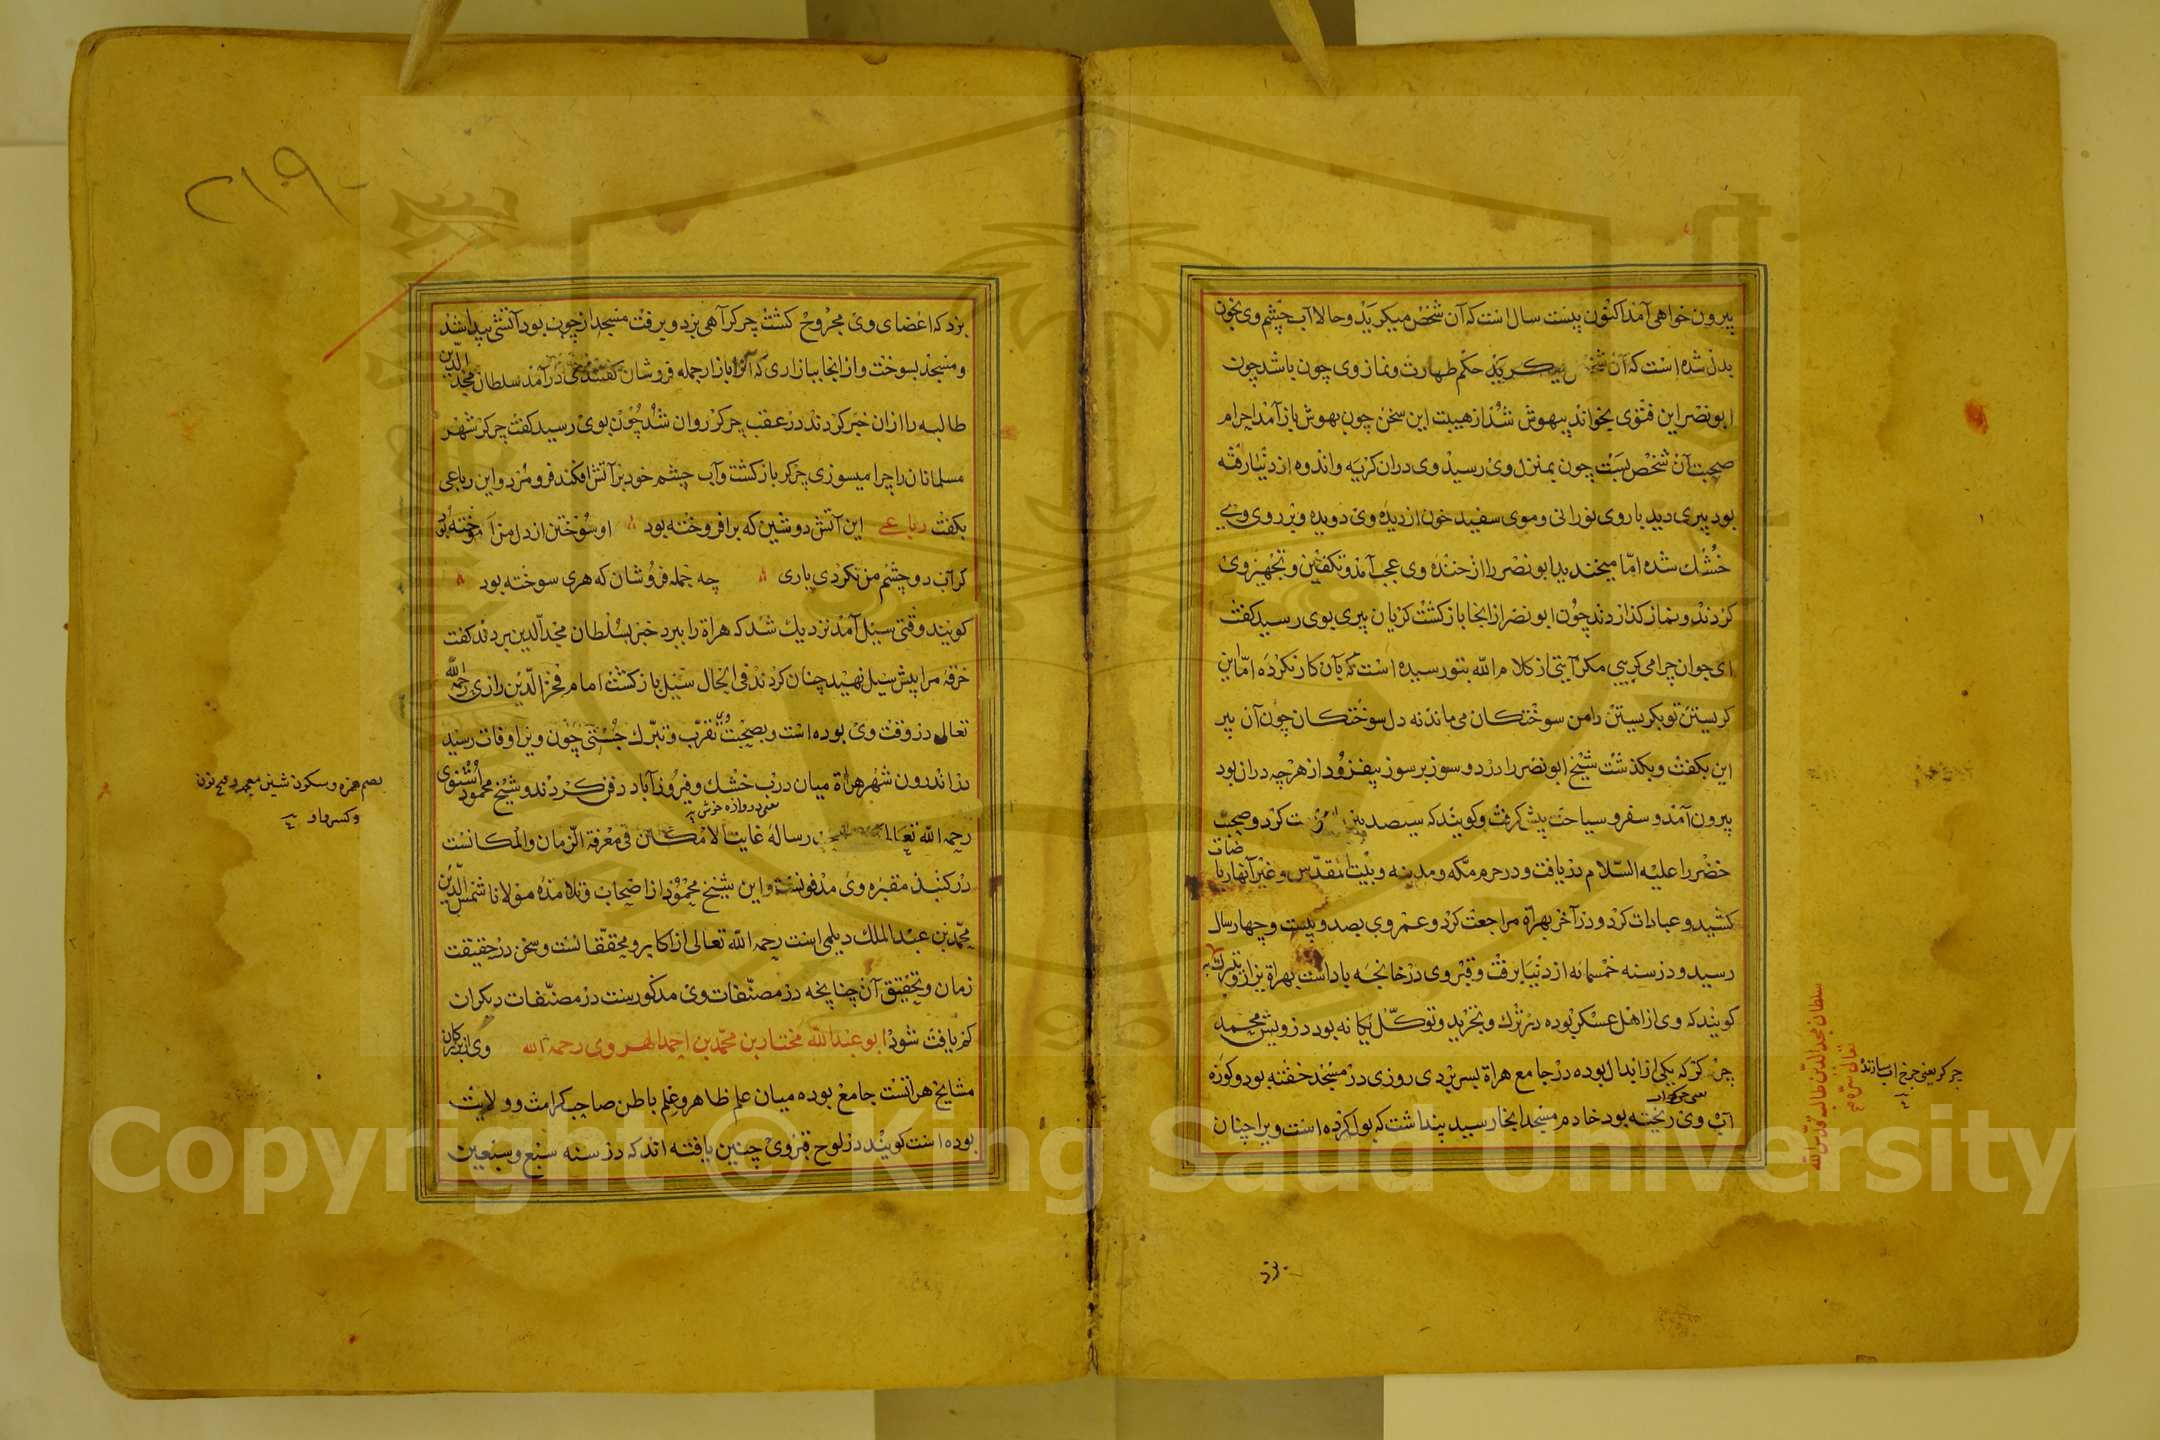 بیرون خواهی آمد اکنون بیست سال است که آن شخص میکرید و حالا آب چشم وی بخون
بدل شده است که آن شخص میکرید حکم طهارت و نماز وی چون باشد چون
ابونصر این فتوی بخواند بیهوش شد از هیبت این سخن چون بهوش باز آمد احرام
صحبت آن شخص بست چون بمنزل وی رسید وی دران کریه و اندوه از دنیا رفته
بود پیری دید با روی نورانی و موی سفید خون از دیده وی دویده و بر روی وی
خشک شده اما میخندید ابونصر را از خنده وی عجب آمد و تکفین و تجهیز وی
کردند و نماز کذاردند چون ابونصر از انجا باز کشت کریان پیری بوی رسید کفت
ای جوان چرا می کریی مکر آیتی از کلام الله بتو رسیده است که بآن کار نکرده اما این
کریستن تو بکریستن دامن سوختکان می ماند نه دل سوختکان چون آن پیر
این بکفت و بکذشت شیخ ابونصر را درد و سوز بر سوز بیفزود از هرچه دران بود
بیرون آمد و سفر و سیاحت پیش کرفت و کویند که سیصد پیر را خدمت کرد و صحبت
خضر را علیه السلام دریافت و در حرم مکه و مدینه و بیت المقدس و غیر آنها ریاضات
کشید و عبادات کرد و در آخر بهراة مراجعت کرد و عمر وی بصد و بیست و چهار سال
رسید و در سنه خمسمائه از دنیا برفت و قبر وی در خانجه باداست بهراة یزار و یتبرک به
کویند که وی از اهل عسکر بوده در ترک و تجرید و توکل یکانه بود درویش محمد
چرکر که یکی از ابدال بوده در جامع هراة بسر بردی روزی در مسجد خفته بود و کوزه
آب وی ریخته بود خادم مسجد انجا رسید پنداشت که بول کرده است ویرا چنان
بزد
سلطان مجد الدین طالبه قدس الله
تعالی سره
بزد که اعضای وی مجروح کشت چرکر آهی بزد و برفت مسجد از چون بود آتشی پیدا شد
و مسجد بسوخت و از انجا ببازاری که آنرا بازار جمله فروشان کفتندی درآمد سلطان مجد الدین
طالبه را ازان خبر کردند در عقب چرکر روان شد چون بوی رسید کفت چرکر شهر
مسلمانان را چرا میسوزی چرکر باز کشت و آب چشم خود بر آتش افکند فرو مرد و این رباعی
بکفت رباعی این آتش دوشین که برافروخته بود او سوختن از دل من آموخته بود
کر آب دو چشم من نکردی یاری چه جمله فروشان که هری سوخته بود
کویند وقتی سیل آمد نزدیک شد که هراة را ببرد خبر بسلطان مجد الدین بردند کفت
خرقه مرا پیش سیل نهید چنان کردند فی الحال سیل باز کشت امام فخر الدین رازی رحمه الله
تعالی در وقت وی بوده است و بصحبت وی تقرب و تبرک جستی چون ویرا وفات رسید
در اندرون شهر هراة میان درب خشک و فیروزآباد دفن کردند و شیخ محمود اشنوی
رحمه الله تعالی صاحب رساله غایت الامکان فی معرفة الزمان والمکانست
در کنبذ مقبره وی مدفونست و این شیخ محمود از اصحاب و تلامذه مولانا شمس الدین
محمد بن عبد الملک دیلمی است رحمه الله تعالی از اکابر و محققانست و سخن در حقیقت
زمان و تحقیق آن چنانچه در مصنفات وی مذکورست در مصنفات دیکران
کم یافت شود ابو عبد الله مختار بن محمد بن احمد الهروی رحمه الله وی از بزرکان
مشایخ هراتست جامع بوده میان علم ظاهر و علم باطن صاحب کرامت و ولایت
بوده است کویند در لوح قبر وی چنین یافته اند که در سنه سبع و سبعین
بضم همزه و سکون شین معجمه و ضم نون
و کسر واو
٢١٩
Copyright © King Saud University
1957